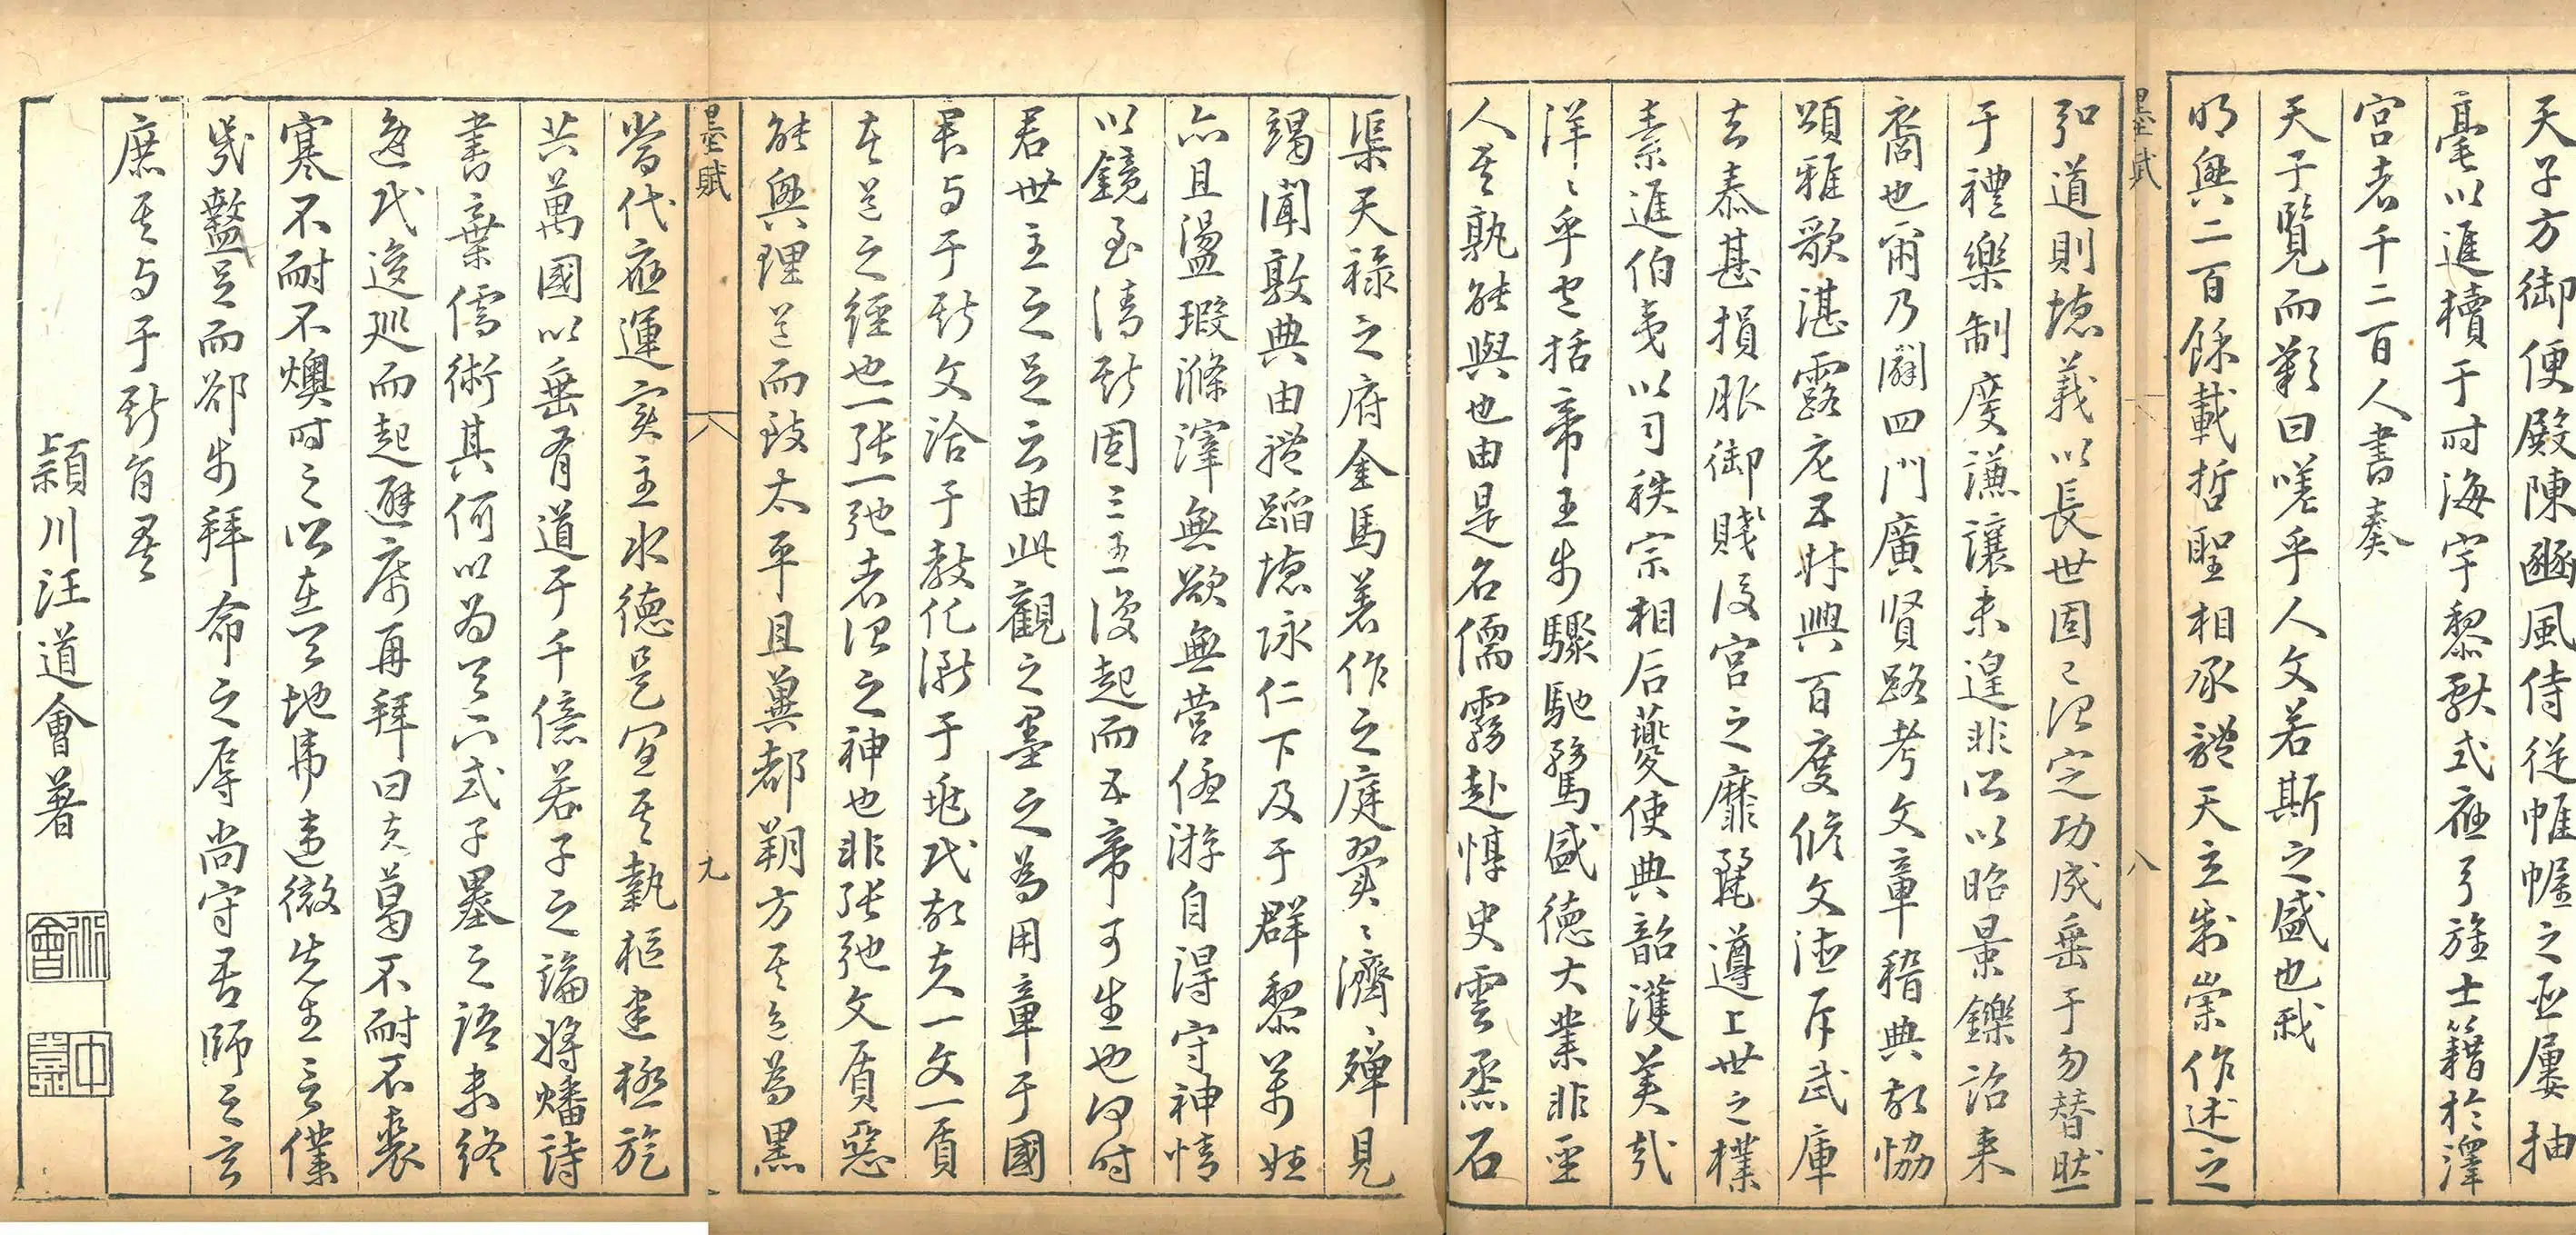 天子方御便殿陳豳風侍從帷幄之臣屢抽
毫以進牘于時海宇黎獻式應弓旌士籍於澤
宮者千二百人書奏
天子覽而歎曰嗟乎人文若斯之盛也哉
明興二百餘載哲聖相承體天立制崇作述之
墨賦
八
弘道則德義以長世固已治定功成垂于勿替然
于禮樂制度謙讓未遑非所以昭景鑠詒来
裔也爾乃闢四門廣賢路考文章稽典故協
頌雅歌湛露尨不財興百度修文德斥武庫
去泰甚損服御賤後宮之靡麗遵上世之樸
素進伯夷以司秩宗相后夔使典韶濩美哉
洋〻乎包括帝王步驟馳騖盛德大業非聖
人其孰能與也由是名儒霧赴惇史雲烝石
渠天祿之府金馬著作之庭翼〻濟〻殫見
竭聞敦典由禮蹈德詠仁下及于群黎萬姓
亦且盪瑕滌滓無欲無營優游自得守神情
以鏡至清斯固三五復起而五帝可生也何時
君世主之足云由此觀之墨之為用章于國
長与于斯文洽于教化漸于兆代故夫一文一質
者道之經也一張一弛者治之神也非張弛文質惡
能興理道而致太平且冀都朔方其色為黑
墨賦
九
當代應運實主水德是宜其執樞建極旋
共萬國以垂有道于千億若子之論將燔詩
書棄儒術其何以為天下式子墨之語未終
逌代逡巡而起避席再拜曰夫葛不耐不裘
寒不耐不燠時之所在天地弗違微先生言僕
幾盭足而郤步拜命之辱尚守吾師之玄
庶其与于斯旨矣
潁川汪道會著